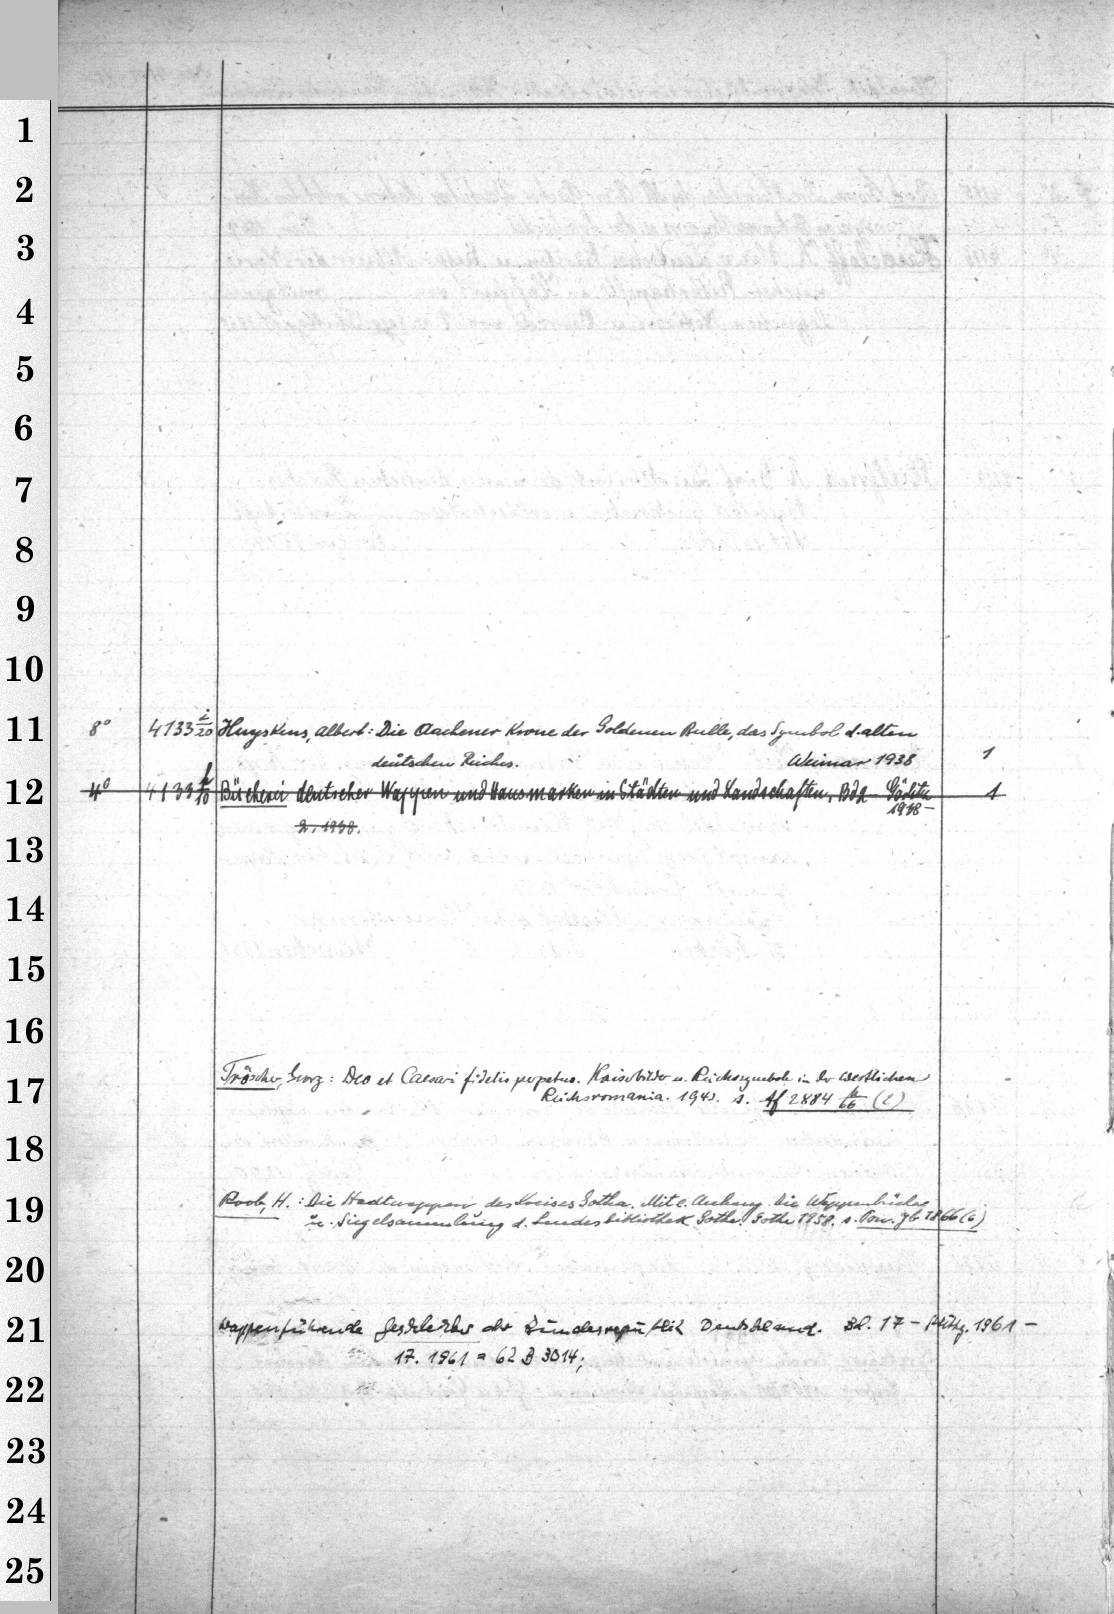 1
2
3
4
5
6
7
8
9
10
11 8° 4133 i/20 Huyskens, Albert: Die Aachener Krone der Goldenen Bulle, das Symbol d. alten
deutschen Reiches. Weimar 1938 1
12 4° 4133 k/10 Bücherei deutscher Wappen und Hausmarken in Städten und Landschaften. Bd 2 Görlitz 1
1938 -
2. 1938.
13
14
15
16
17 Tröscher, Georg: Deo et Caesari fidelis perpetuo. Kaiserbilder u. Reichssymbole in der westlichen
Reichsromania. 1943. s. Af 2884
18
19 Roob, H.: Die Stadtwappen des Kreises Gotha. Mit e. Anhang: Die Wappenbücher
u. Siegelsammlung d. Landesbibliothek Gotha. Gotha 1958. s.
20
21 Wappenführende Geschlechter der Bundesrepublik Deutschland. Bd. 17 - 1961 -
17. 1961 = 62 B 3014;
22
23
24
25